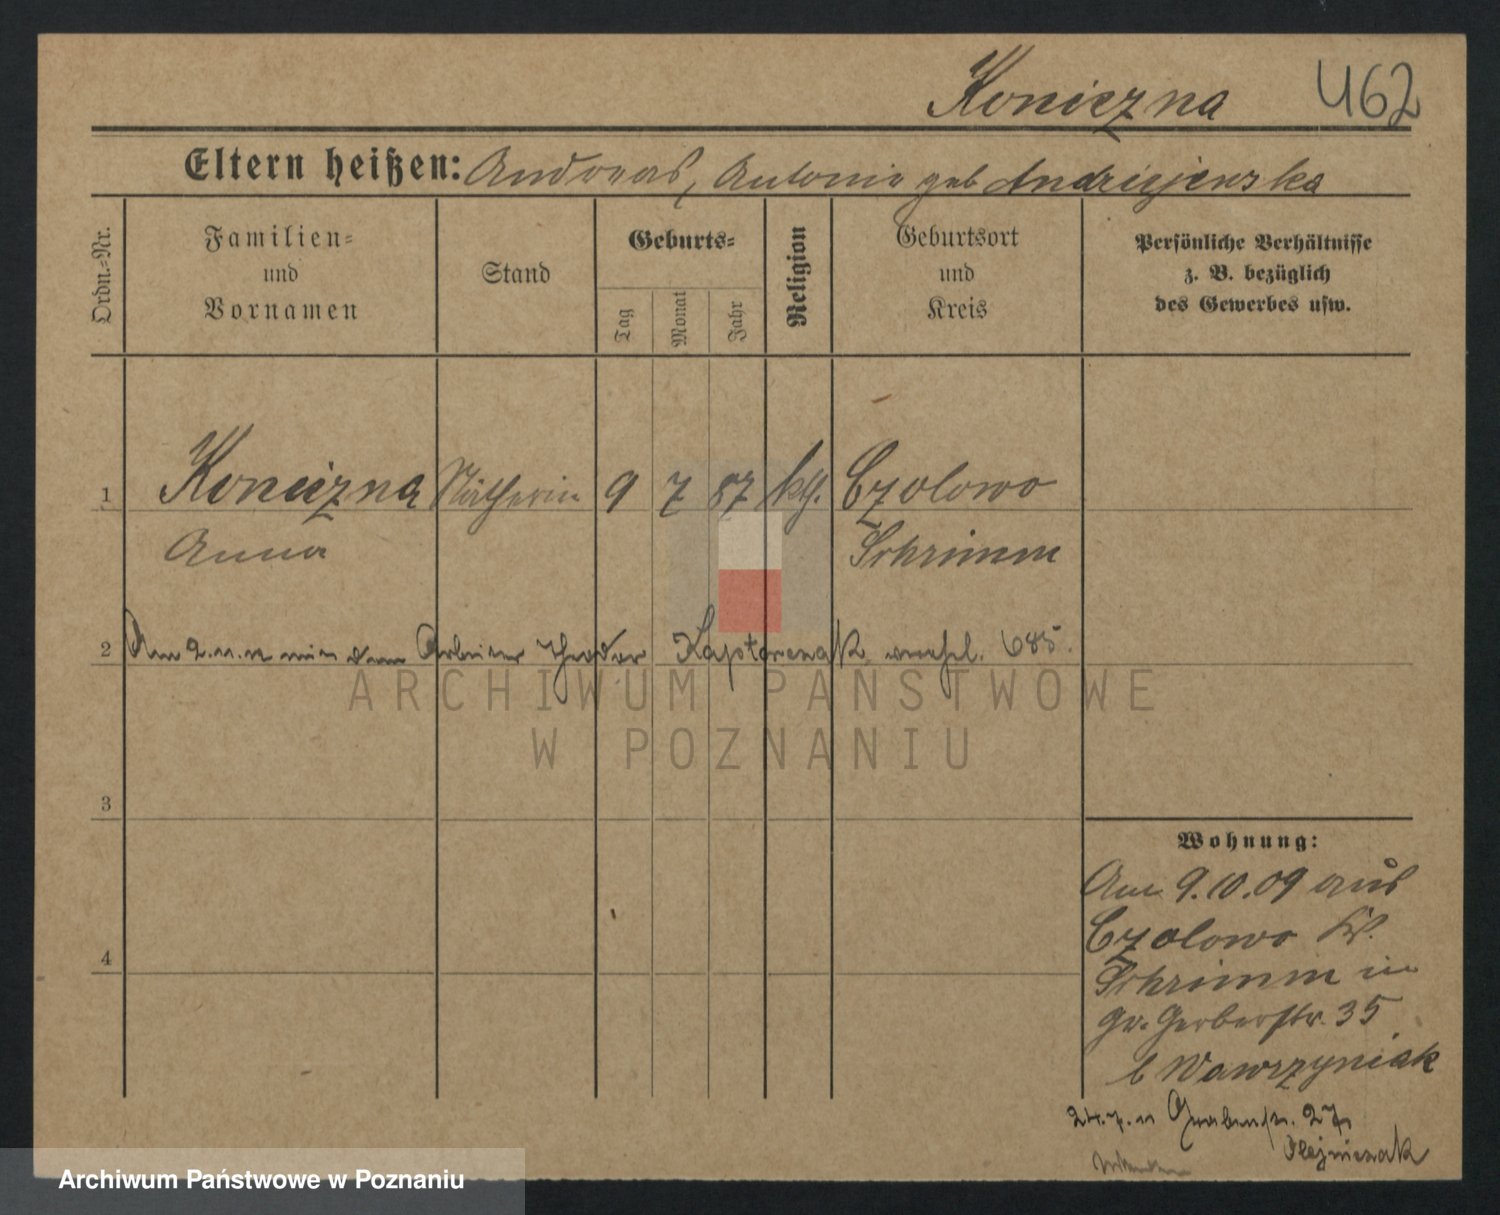 Konieczna 462
Eltern heißen: Andreas, Antonie geb Andrzejewska
Ordn.-Nr.
Familien-
und
Vornamen
Stand
Geburts-
Tag
Monat
Jahr
Religion
Geburtsort
und
Kreis
Persönliche Verhältnisse
z. B. bezüglich
des Gewerbes usw.
1 Konieczna Nätherin 9 7 87 kth. Czolowo
Anna Schrimm
2 Am 2.11.11 mit dem Arbeiter Theodor Kaptarczak verehel. 685.
ARCHIWUM PAŃSTWOWE
W POZNANIU
3
4
Wohnung:
Am 9.10.09 aus
Czolowo Kr.
Schrimm in
Gr. Gerberstr. 35
b Wawrzyniak
24.7.11 Grabenstr. 27
Olejniczak
Archiwum Państwowe w Poznaniu